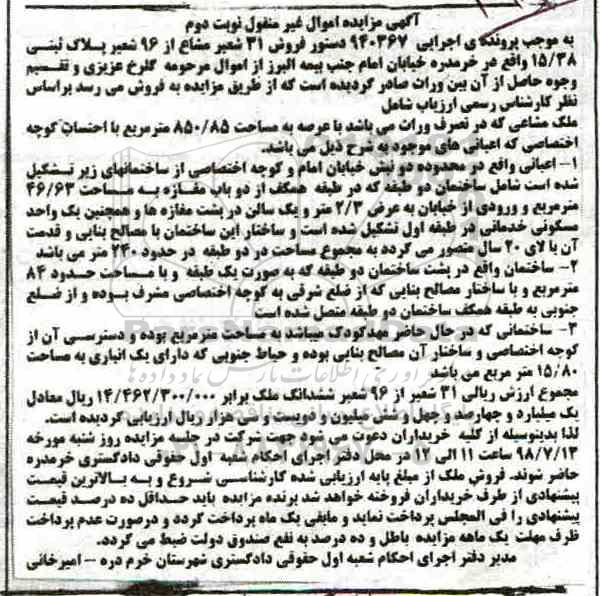 آگهی مزایده اموال غیر منقول نوبت دوم
به موجب پرونده ی اجرایی ۹۴۰۳۶۷ دستور فروش ۳۱ شعیر مشاع از ۹۶ شعیر پلاک ثبتی
۱۵/۳۸ واقع در خرمدره خیابان امام جنب بیمه البرز از اموال مرحومه گلرخ عزیزی و تقسیم
وجوه حاصل از آن بین وراث صادر گردیده است که از طریق مزایده به فروش می رسد براساس
نظر کارشناس رسمی ارزیاب شامل
ملک مشاعی که در تصرف وراث می باشد با عرصه به مساحت ۸۵۰/۸۵ مترمربع با احتساب کوچه
اختصاصی که اعیانی های موجود به شرح ذیل می باشد.
۱- اعیانی واقع در محدوده دو نبش خیابان امام و کوچه اختصاصی از ساختمانهای زیر تشکیل
شده است شامل ساختمان دو طبقه که در طبقه همکف از دو باب مغازه به مساحت ۴۶/۶۳
مترمربع و ورودی از خیابان به عرض ۲/۳ متر و یک سالن در پشت مغازه ها و همچنین یک واحد
مسکونی خدماتی در طبقه اول تشکیل شده است و ساختار این ساختمان با مصالح بنایی و قدمت
آن بالای ۲۰ سال متصور می گردد به مجموع مساحت در دو طبقه در حدود ۲۴۰ متر می باشد
۲- ساختمان واقع در پشت ساختمان دو طبقه که به صورت یک طبقه و با مساحت حدود ۸۴
مترمربع و با ساختار مصالح بنایی که از ضلع شرقی به کوچه اختصاصی مشرف بوده و از ضلع
جنوبی به طبقه همکف ساختمان دو طبقه متصل شده است
۳- ساختمانی که در حال حاضر مهدکودک میباشد به مساحت مترمربع بوده و دسترسی آن از
کوچه اختصاصی و ساختار آن مصالح بنایی بوده و حیاط جنوبی که دارای یک انباری به مساحت
۱۵/۸۰ متر مربع می باشد
مجموع ارزش ریالی ۳۱ شعیر از ۹۶ شعیر ششدانگ ملک برابر ۱۴/۴۶۲/۳۰۰/۰۰۰ ریال معادل
یک میلیارد و چهارصد و چهل و شش میلیون و دویست و سی هزار ریال ارزیابی گردیده است.
لذا بدینوسیله از کلیه خریداران دعوت می شود جهت شرکت در جلسه مزایده روز شنبه مورخه
۹۸/۷/۱۳ ساعت ۱۱ الی ۱۲ در محل دفتر اجرای احکام شعبه اول حقوقی دادگستری خرمدره
حاضر شوند. فروش ملک از مبلغ پایه ارزیابی شده کارشناسی شروع و به بالاترین قیمت
پیشنهادی از طرف خریداران فروخته خواهد شد برنده مزایده باید حداقل ده درصد قیمت
پیشنهادی را فی المجلس پرداخت نماید و مابقی یک ماه پرداخت گردد و درصورت عدم پرداخت
ظرف مهلت یک ماهه مزایده باطل و ده درصد به نفع صندوق دولت ضبط می گردد.
مدیر دفتر اجرای احکام شعبه اول حقوقی دادگستری شهرستان خرم دره - امیرخانی